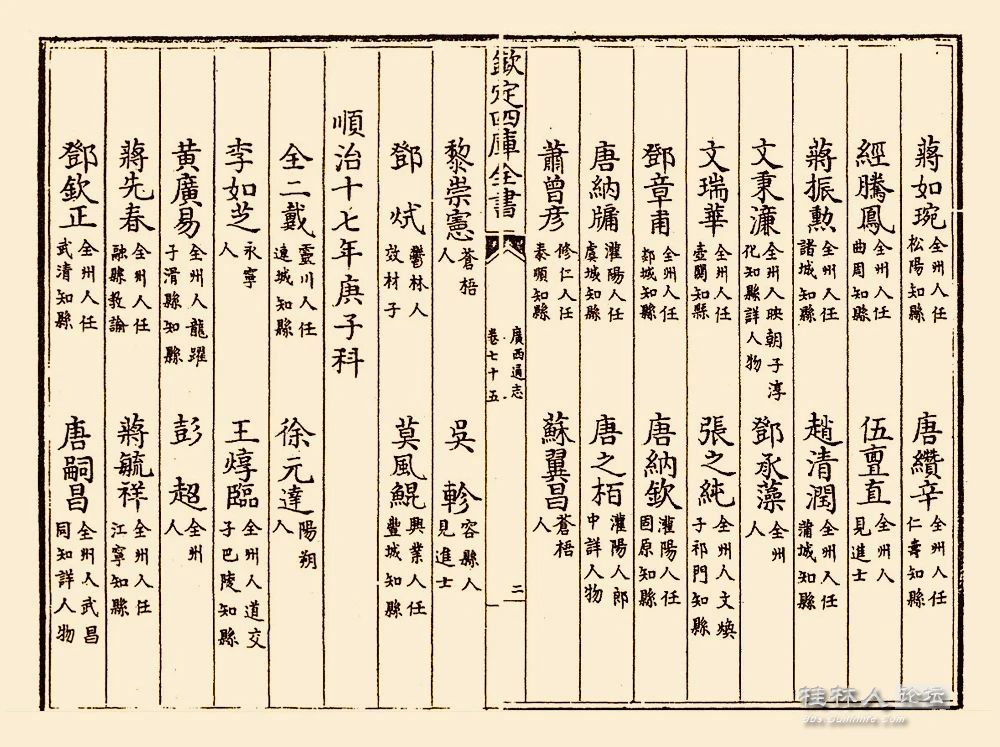 蔣如琬 全州人任松陽知縣 唐纘辛 全州人任仁壽知縣
經騰鳳 全州人任曲周知縣 伍亶直 全州人見進士
蔣振勲 全州人任諸城知縣 趙清潤 全州人任蒲城知縣
文秉濂 全州人映朝子淳化知縣詳人物 鄧承藻 全州人
文瑞華 全州人任壺關知縣 張之純 全州人文煥子祁門知縣
鄧章甫 全州人任郯城知縣 唐納欽 灌陽人任固原知縣
唐納牗 灌陽人任虞城知縣 唐之栢 灌陽人郎中詳人物
蕭曾彦 修仁人任泰順知縣 蘇翼昌 蒼梧人
欽定四庫全書 廣西通志 卷七十五 二
黎崇憲 蒼梧人 吳軫 容縣人見進士
鄧斌 鬱林人效材子 莫風鯤 興業人任豐城知縣
順治十七年庚子科
全二戴 靈川人任連城知縣 徐元達 陽朔人
李如芝 永寧人 王焞臨 全州人道交子巴陵知縣
黃廣易 全州人龍躍子滑縣知縣 彭超 全州人
蔣先春 全州人任融縣教諭 蔣毓祥 全州人任江寧知縣
鄧欽正 全州人任武清知縣 唐嗣昌 全州人武昌同知詳人物
桂林人论坛
bbs.Guilinlife.com